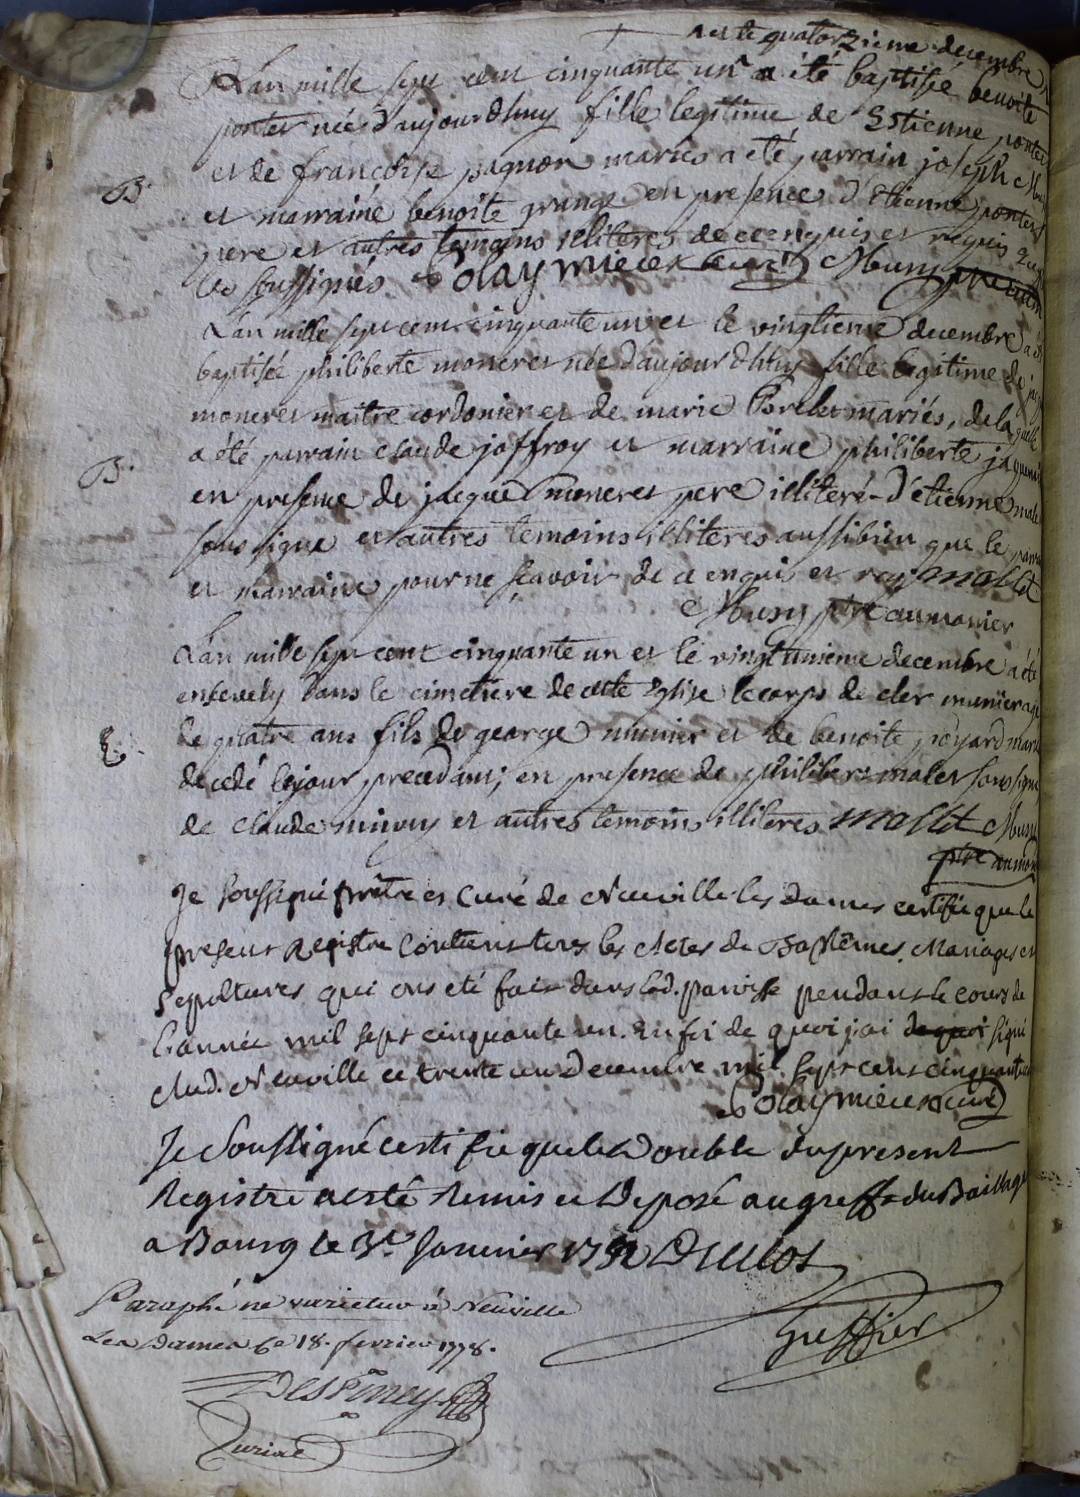 + et le quatorzieme decembre
L'an mille sept cent cinquante un a été baptisée benoite
ponter née d'aujourdhuy fille legitime de Estienne ponter
et de françoise pagnon mariés a été parrain joseph
B. et marraine benoite grange en presence d'étienne ponter
pere et autres temoins illiteres de ce enquis et requis
les soussignés Dolaymieux curé Muny ptre
L'an mille sept cent cinquante un et le vingtieme decembre a été
baptisée philiberte moneret née d'aujourdhuy fille legitime de
moneret maitre cordonier et de marie Borelet mariés, de laquelle
a été parrain claude joffroy et marraine philiberte
B. en presence de jacque moneret pere illiteré d'étienne
soussigné et autres temoins illiteres aussibien que le
et marraine pour ne sçavoir de ce enqui et req. mallet
Muny ptre aumonier
L'an mille sept cent cinquante un et le vingtunieme decembre a été
ensevely dans le cimetiere de cette Eglise le corps de cler munier
de quatre ans fils de george munier et de benoite poyard
decedé le jour precedant, en presence de philibert malet soussigné
de claude et autres temoins illiteres mallet Muny
ptre
Je soussigné prêtre et Curé de Neuville les dames certifie que le
present Registre Contient tous les Actes de Baptêmes, Mariages et
Sepultures qui ont été fait dans lad. paroisse pendant le cours de
L'année mil sept cinquante un. En foi de quoi j'ai de quoi signé
Aud. Neuville ce trente un Decembre mil sept cent cinquante
Dolaymieux curé
Je Soussigné certifie que le Double du present
Registre a esté Remis et Deposé au greffe du Bailliage
a Bourg le 3e. Janvier 1752 Duclos
Greffier
Paraphé ne varietur à Neuville
Les Dames ce 18. fevrier 1778.
Despiney